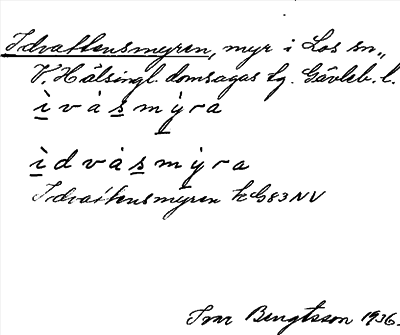 Idvattensmyren, myr i Los sn.,
V. Hälsingl. domsagas tg. Gävleb. l.
ì v á s m ý r a
ì d v á s m ý r a
Idvattensmyren kG83NV
Ivar Bengtsson 1936.